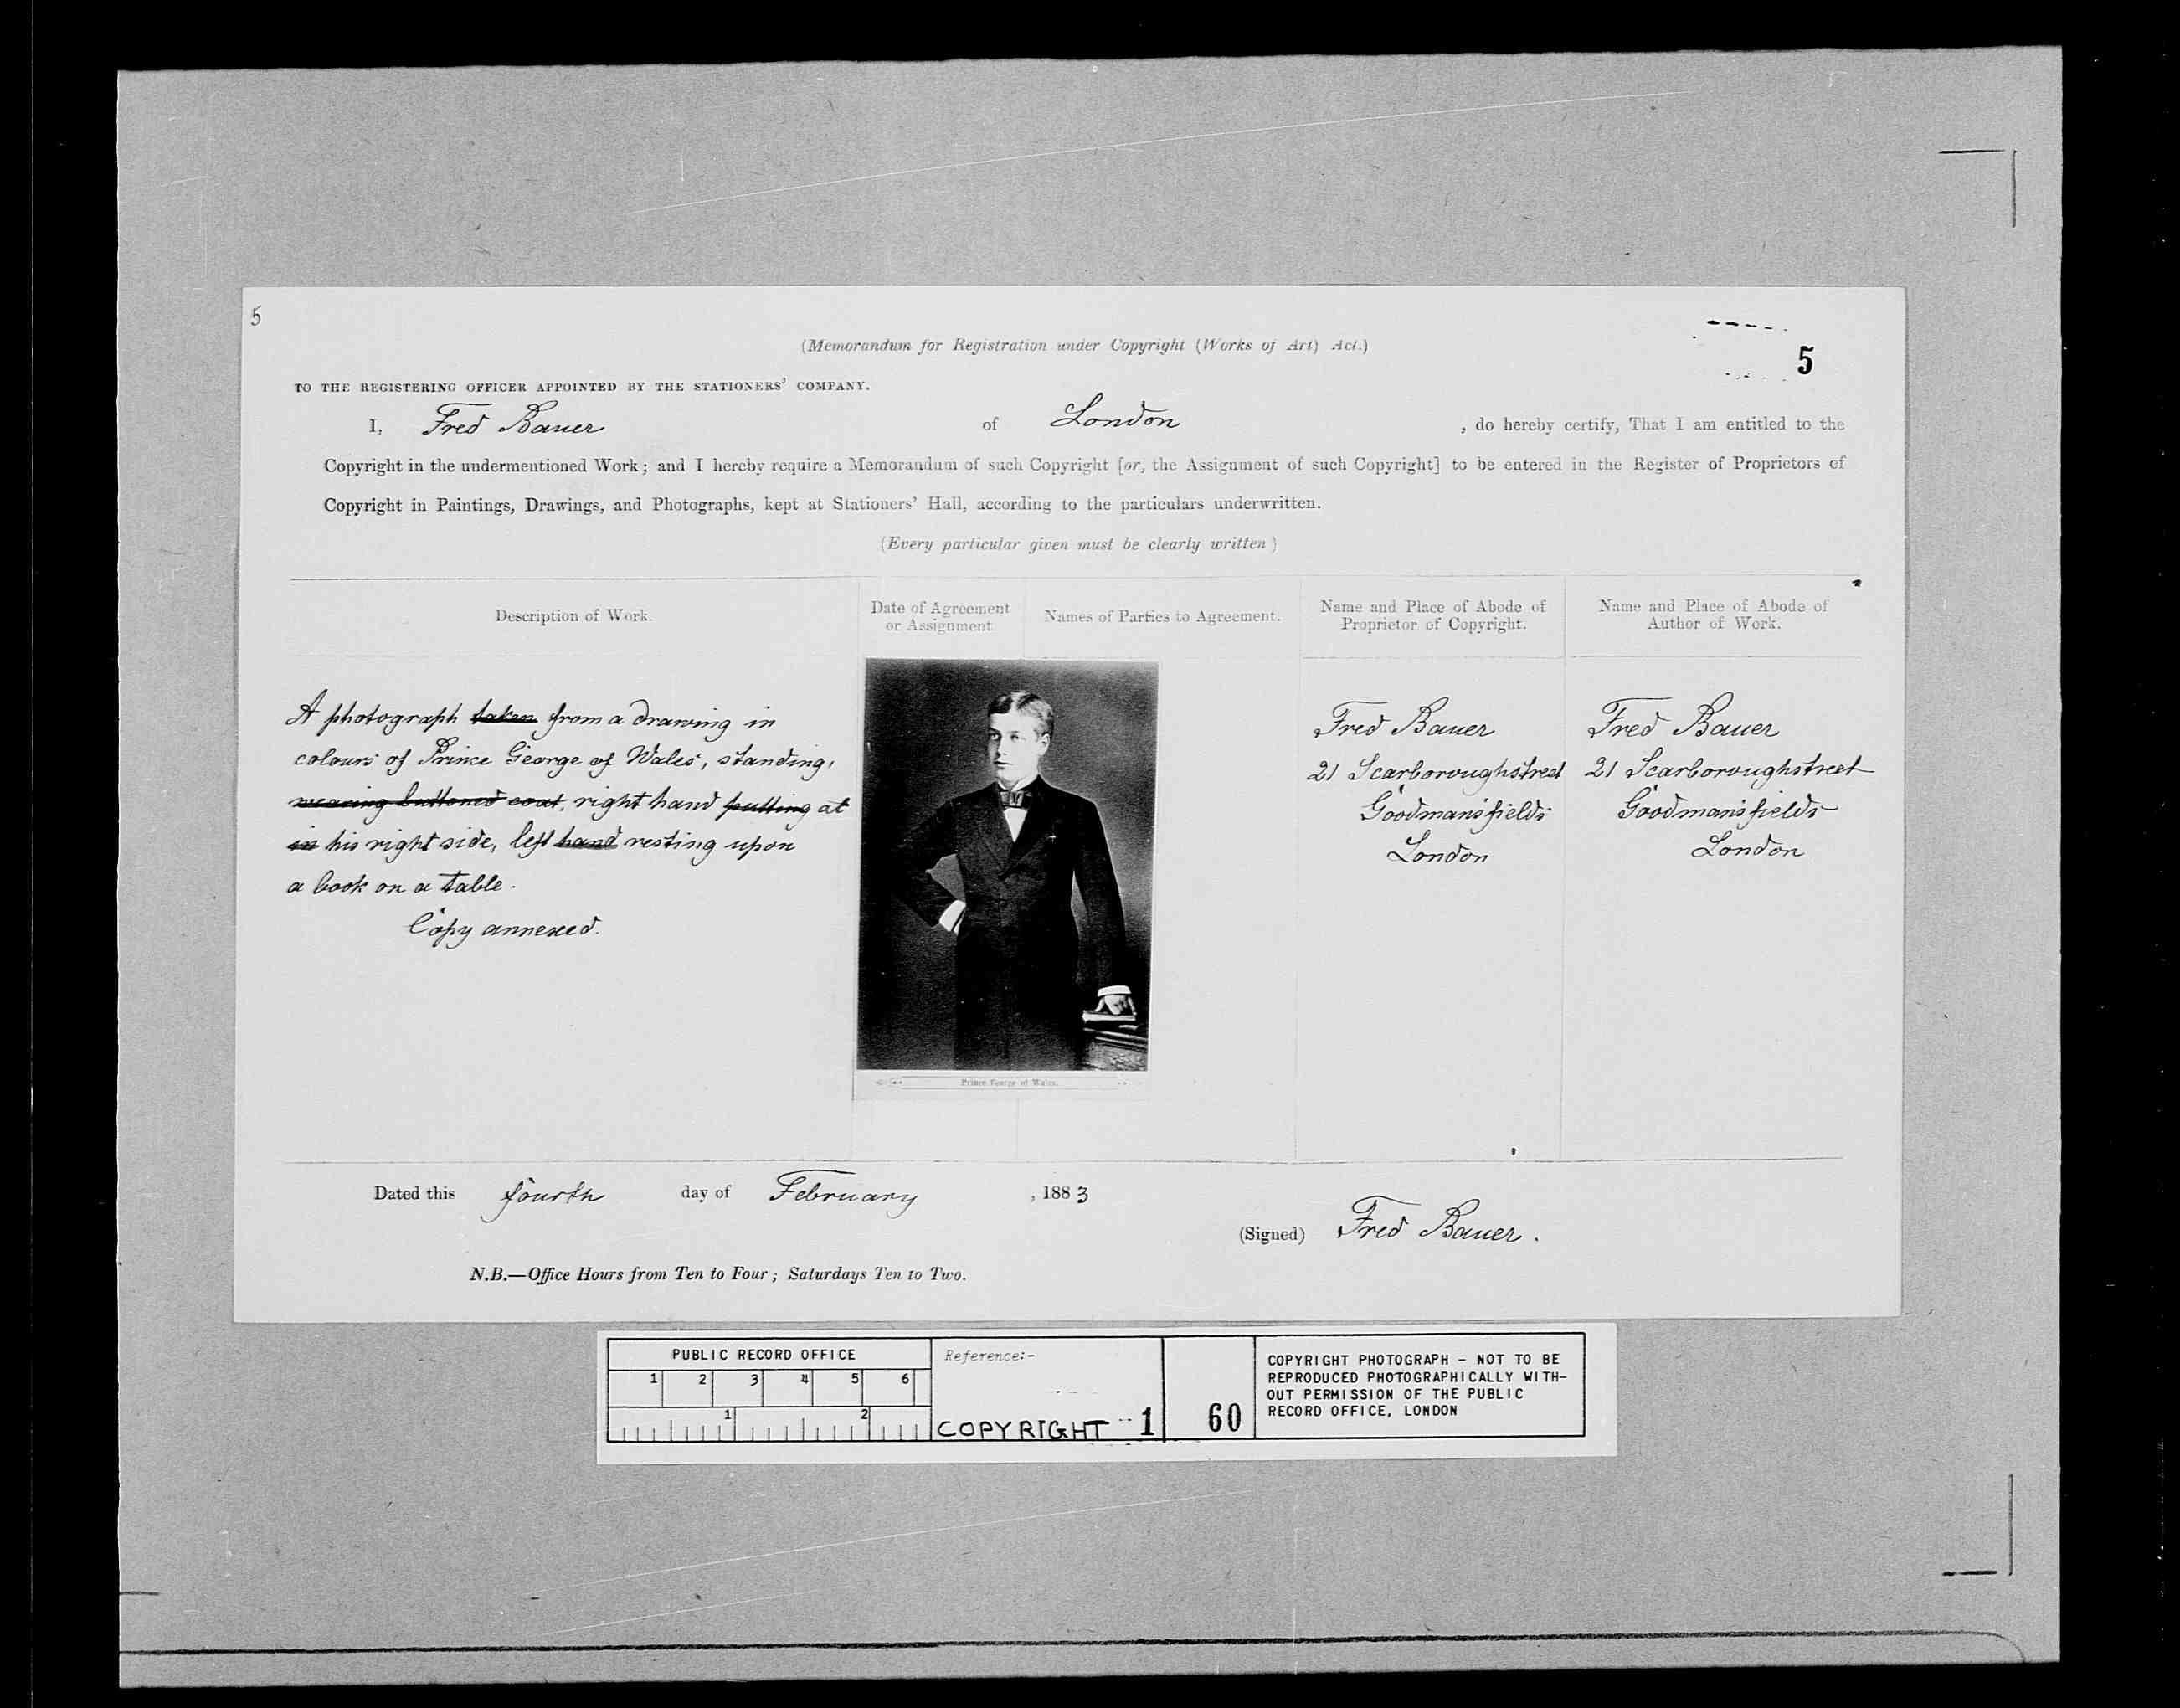 5
(Memorandum for Registration under Copyright (Works of Art) Act.)
5
TO THE REGISTERING OFFICER APPOINTED BY THE STATIONERS' COMPANY.
I, Fred Bauer of London , do hereby certify, That I am entitled to the
Copyright in the undermentioned Work; and I hereby require a Memorandum of such Copyright [or, the Assignment of such Copyright] to be entered in the Register of Proprietors of
Copyright in Paintings, Drawings, and Photographs, kept at Stationers' Hall, according to the particulars underwritten.
(Every particular given must be clearly written)
Description of Work.
Date of Agreement
or Assignment.
Names of Parties to Agreement.
Name and Place of Abode of
Proprietor of Copyright.
Name and Place of Abode of
Author of Work.
A photograph taken from a drawing in
colours of Prince George of Wales, standing,
wearing buttoned coat, right hand putting at
in his right side, left hand resting upon
a book on a table.
Copy annexed.
Prince George of Wales.
Fred Bauer
21 Scarboroughstreet
Goodmansfields
London
Fred Bauer
21 Scarboroughstreet
Goodmansfields
London
Dated this fourth day of February , 1883
(Signed) Fred Bauer.
N.B.—Office Hours from Ten to Four; Saturdays Ten to Two.
PUBLIC RECORD OFFICE
1 2 3 4 5 6
1 2
Reference:-
COPYRIGHT 1 60
COPYRIGHT PHOTOGRAPH - NOT TO BE
REPRODUCED PHOTOGRAPHICALLY WITH-
OUT PERMISSION OF THE PUBLIC
RECORD OFFICE, LONDON